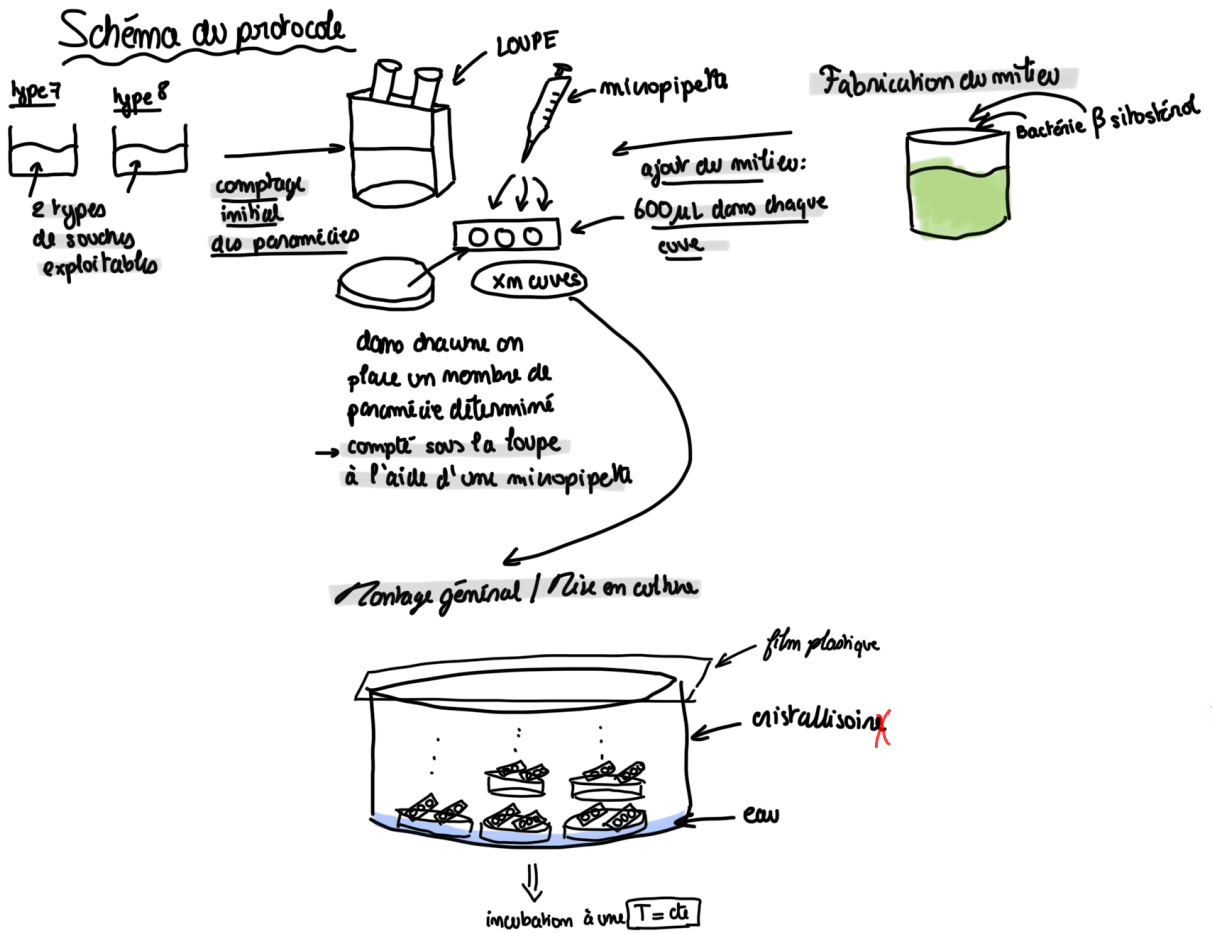 Schéma du protocole
type 7
type 8
2 types
de souches
exploitables
comptage
initial
des paramécies
LOUPE
micropipette
xm cuves
Fabrication du milieu
Bactérie
β sitostérol
ajout du milieu:
600 µL dans chaque
cuve
dans chacune on
place un nombre de
paramécie déterminé
→ compté sous la loupe
à l'aide d'une micropipette
Montage général / Mise en culture
film plastique
cristallisoire
eau
incubation à une T = cte